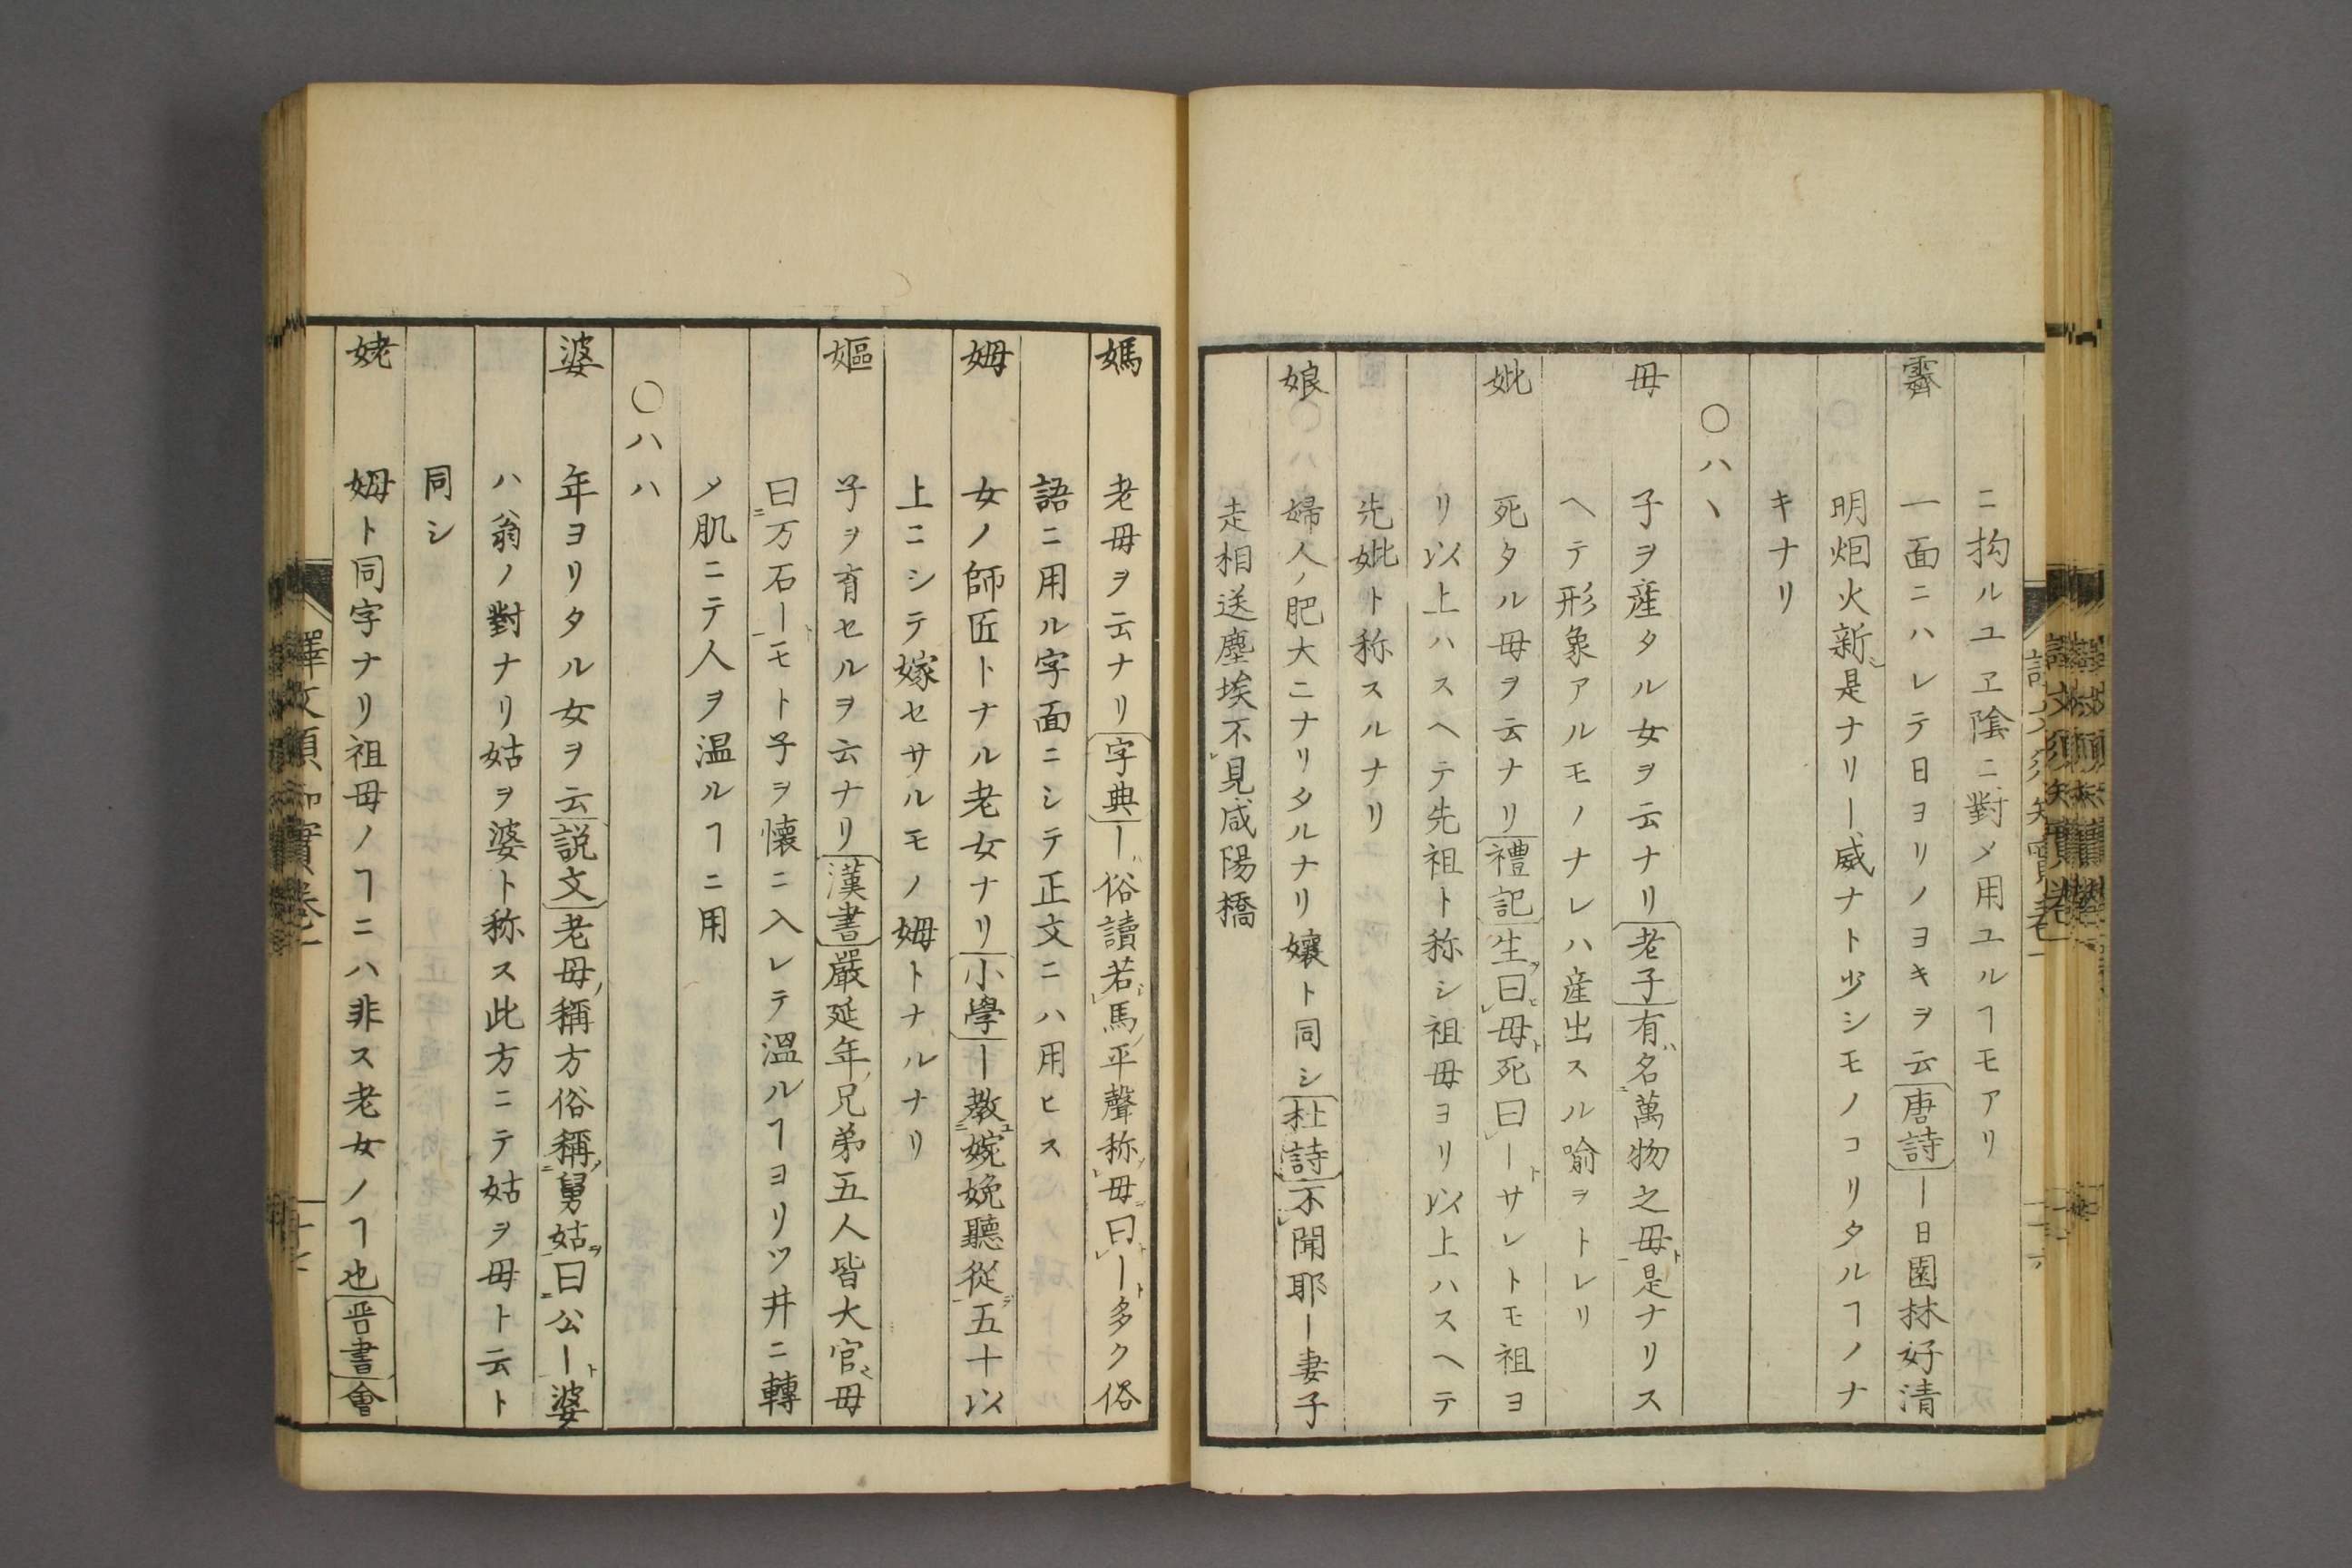 ニ拘ルユヱ陰ニ對メ用ユルヿモアリ
霽 一面ニハレテ日ヨリノヨキヲ云唐詩ー日園林好清
明烟火新是ナリー威ナト少シモノコリタルヿノナ
キナリ
〇ハヽ
母 子ヲ産タル女ヲ云ナリ老子有名萬物之母是ナリス
ヘテ形象アルモノナレハ産出スル喩ヲトレリ
妣 死タル母ヲ云ナリ禮記生曰母死曰ーサレトモ祖ヨ
リ以上ハスヘテ先祖ト称シ祖母ヨリ以上ハスヘテ
先妣ト称スルナリ
娘 婦人ノ肥大ニナリタルナリ孃ト同シ杜詩不聞耶ー妻子
走相送塵埃不見咸陽橋
媽 老母ヲ云ナリ字典ー俗讀若馬平聲称母曰ー多ク俗
語ニ用ル字面ニシテ正文ニハ用ヒス
姆 女ノ師匠トナル老女ナリ小學ー教婉娩聽從五十以
上ニシテ嫁セサルモノ姆トナルナリ
嫗 子ヲ育セルヲ云ナリ漢書嚴延年兄弟五人皆大官母
曰万石ーモト子ヲ懐ニ入レテ温ルヿヨリツ井ニ轉
メ肌ニテ人ヲ温ルヿニ用
〇ハハ
婆 年ヨリタル女ヲ云説文老母稱方俗稱舅姑曰公ー婆
ハ翁ノ對ナリ姑ヲ婆ト称ス此方ニテ姑ヲ母ト云ト
同シ
姥 姆ト同字ナリ祖母ノヿニハ非ス老女ノヿ也晋書會